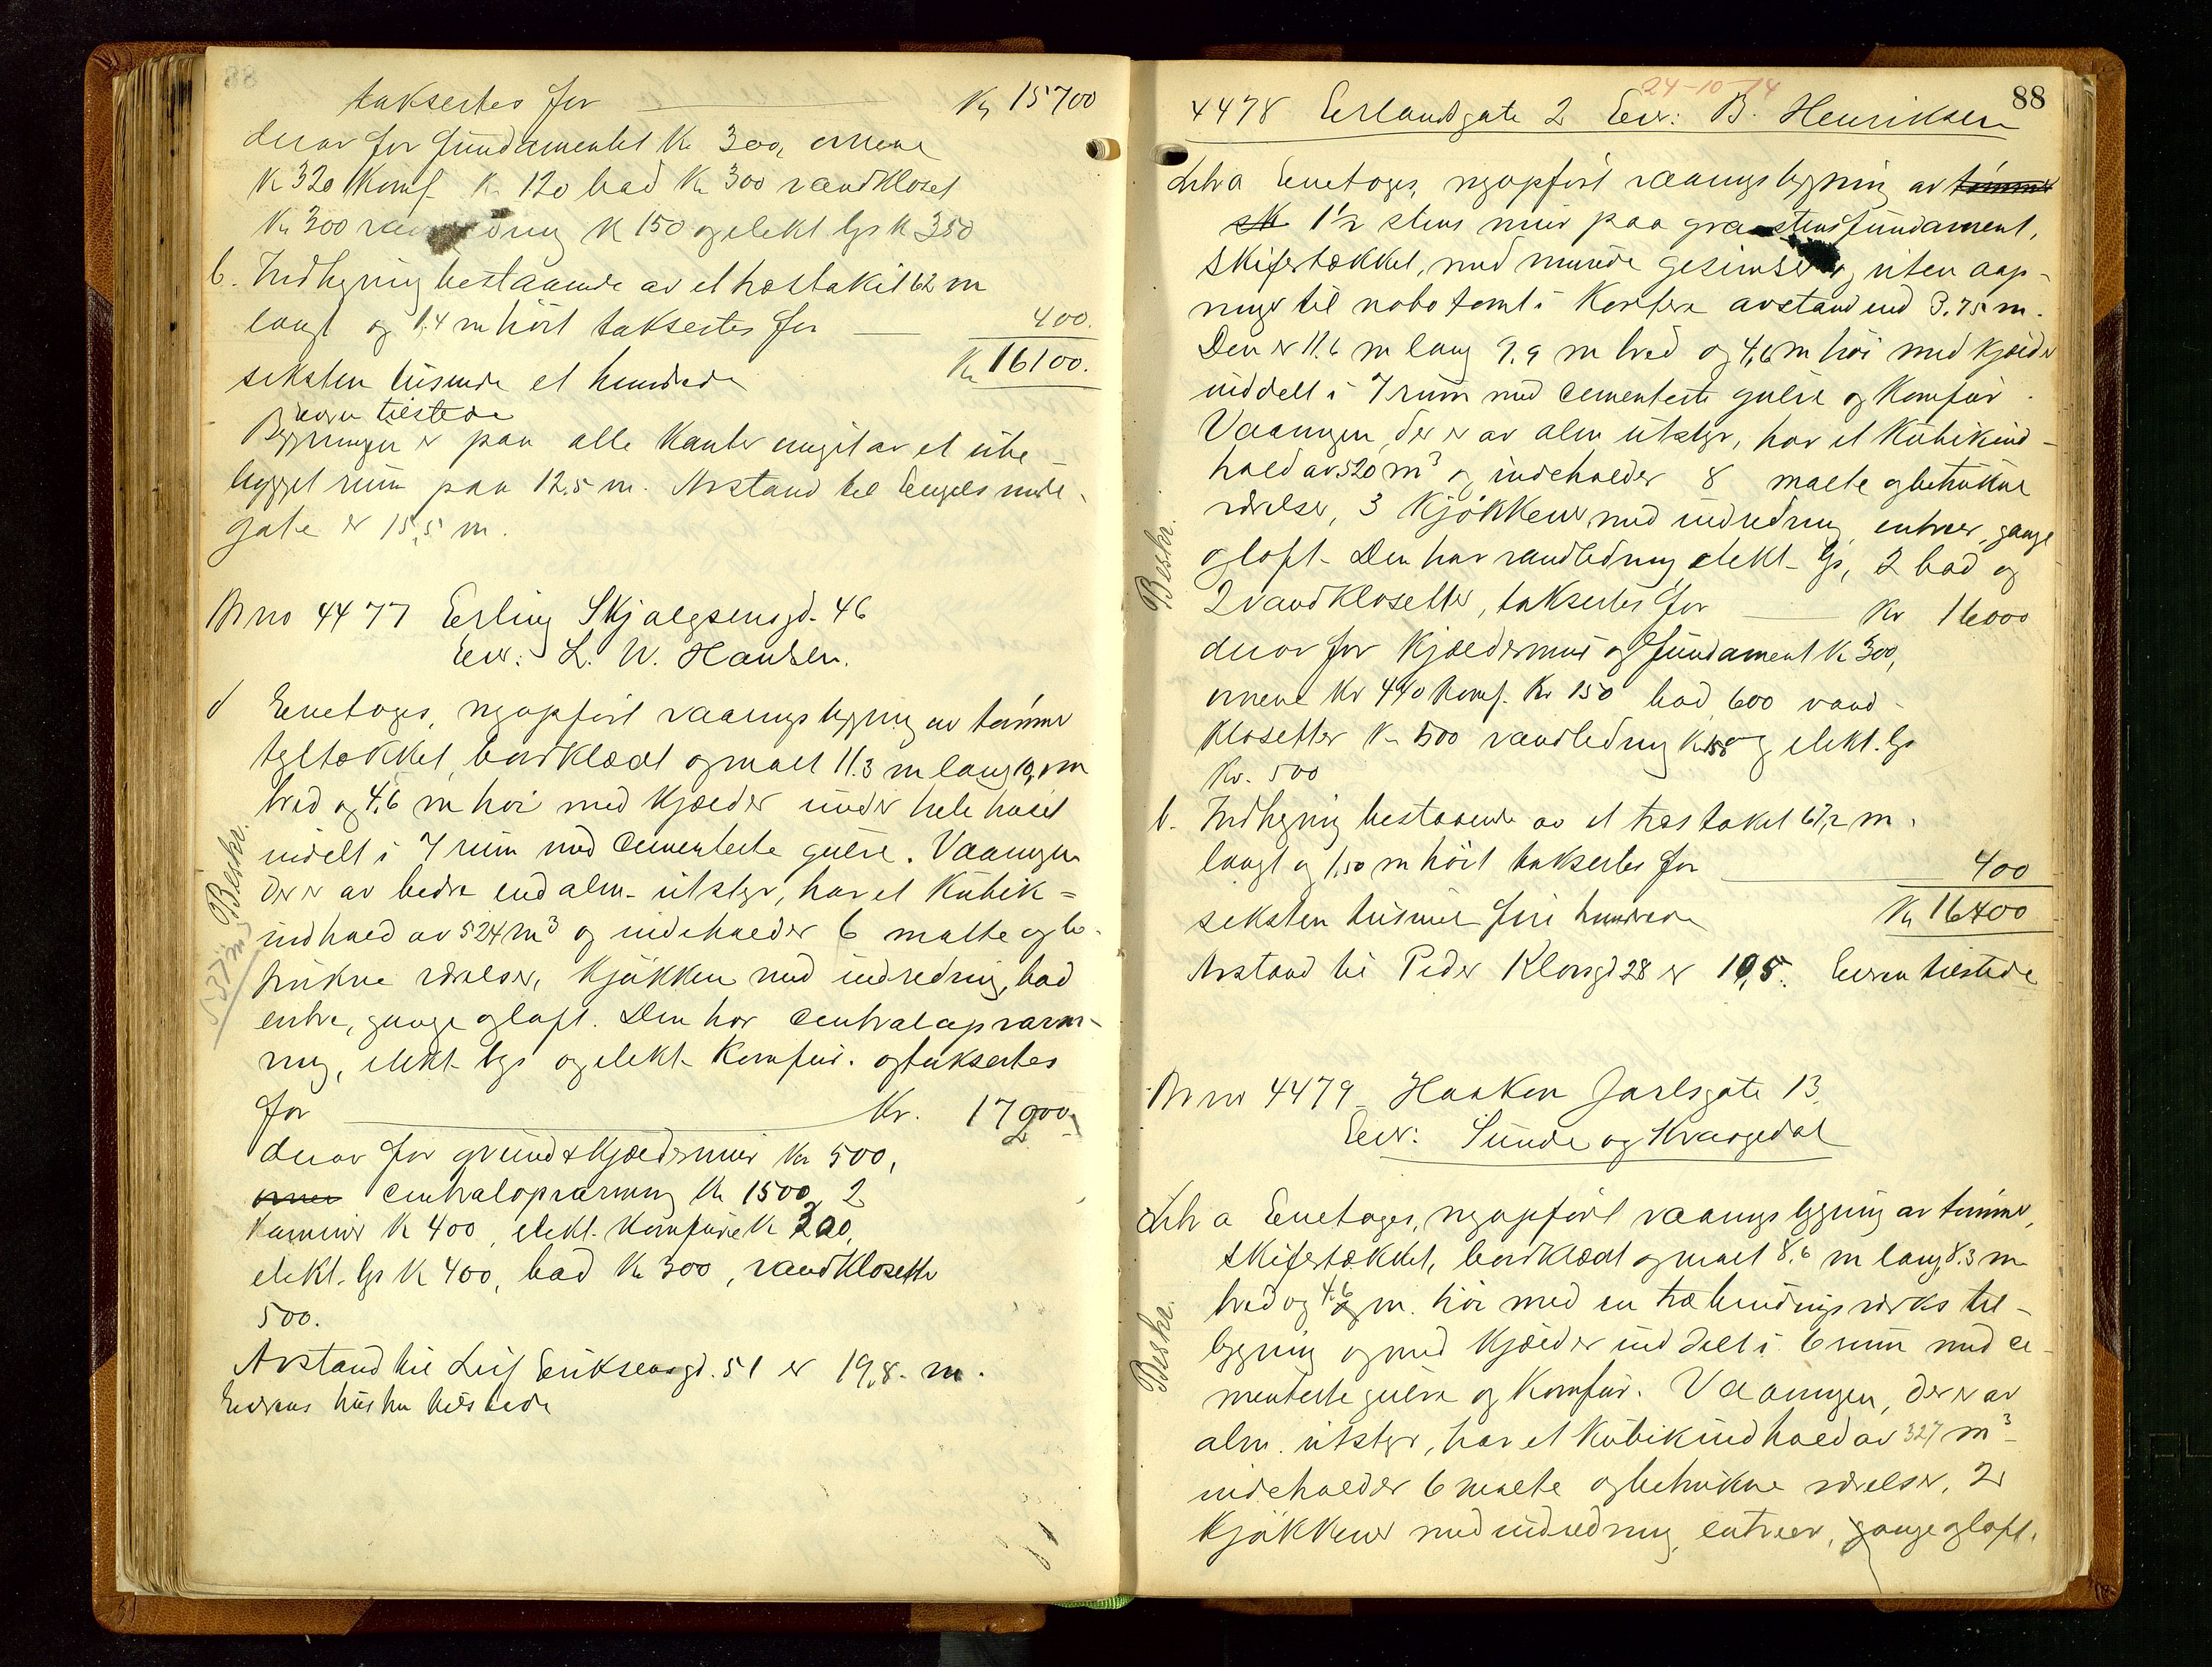 taksertes for Kr 15700
derav for fundamentet Kr 300, ovnene
Kr 320 Komf. Kr 120 bad Kr 300 vandkloset
Kr 300 vandledning Kr 150 og elekt lys Kr 350
b. Indhegning bestaaende av et træstakit 62 m
langt og 1,4 m höit taksertes for 400.
seksten tusende et hundrede Kr 16100.
Eieren tilstede
Bygningen er paa alle Kanter omgit av et ube-
bygget rum paa 12,5 m. Avstand til Engelsminde-
gate er 15,5 m.
Br no 4477 Erling Skjalgsensgd. 46
Eier: L. W. Hansen.
Beskr.
537 m³
a Enetages, nyopfört vaaningsbygning av tömmer
tegltækket, bordklædt og malt 11.3 m lang 10,1 m
bred og 4,6 m höi med Kjælder under hele huset
inddelt i 7 rum med cementerte gulve. Vaaningen
der er av bedre end alm. utstyr, har et Kubik=
indhold av 524 m³ og indeholder 6 malte og be-
trukne værelser, Kjökken med indredning, bad
entre, gange og loft. Den har centralopvarm-
ning, elekt. lys og elekt. Komfur. og taksertes
for Kr. 17900.
derav for grund & Kjældermur Kr 500,
ovner centralopvarmning Kr 1500, 2
Kaminer Kr 400, elekt. Komfure Kr 300,
elekt. lys Kr 400, bad Kr 300, vandklosette
500.
Avstand til Leif Eriksensgd. 51 er 19,8. m.
Eierens hustru tilstede
24-10-14
88
4478 Erlandsgate 2 Eier: B. Henriksen
Beskr.
Litr a Enetages, nyopfört vaaningsbygning av tömmer
sk 1½ stens mur paa graastensfundament,
skifertækket, med murede gesimser og uten aap-
ninger til nabotomt i Kortere avstand end 3.75 m.
Den er 11.6 m lang 9.9 m bred og 4,6 m höi med Kjælder
inddelt i 7 rum med cementerte gulve og Komfur.
Vaaningen, der er av alm utstyr, har et Kubikind-
hold av 520 m³ og indeholder 8 malte og betrukne
værelser, 3 Kjökkener med indredning, entreer, gange
og loft. Den har vandledning elekt. lys, 2 bad og
2 vandklosetter, taksertes for Kr 16000
derav for Kjældermur og fundament Kr 300,
ovnene Kr 440 Komf. Kr 150 bad 600 vand-
klosetter Kr 500 vandledning Kr 150 og elekt. lys
Kr. 500
b. Indhegning bestaaende av et træstaket 67,2 m.
langt og 1,50 m höit taksertes for 400
seksten tusinde fire hundrede Kr 16400
Avstand til Peder Klowsgd 28 er 10,5. Eieren tilstede
Br no 4479 Haakon Jarlsgate 13.
Eier: Sunde og Kvasgedal
Beskr.
Litr a Enetages, nyopfört vaaningsbygning av tömmer,
skifertækket, bordklædt og malt 8.6 m lang, 8.3 m
bred og 4.6 m. höi med en træbindingsverks til-
bygning og med Kjælder inddelt i 6 rum med ce-
menterte gulve og Komfur. Vaaningen, der er av
alm. utstyr, har et Kubikindhold av 327 m³
indeholder 6 malte og betrukne værelser, 2
Kjökkener med indredning, entreer, gange og loft.